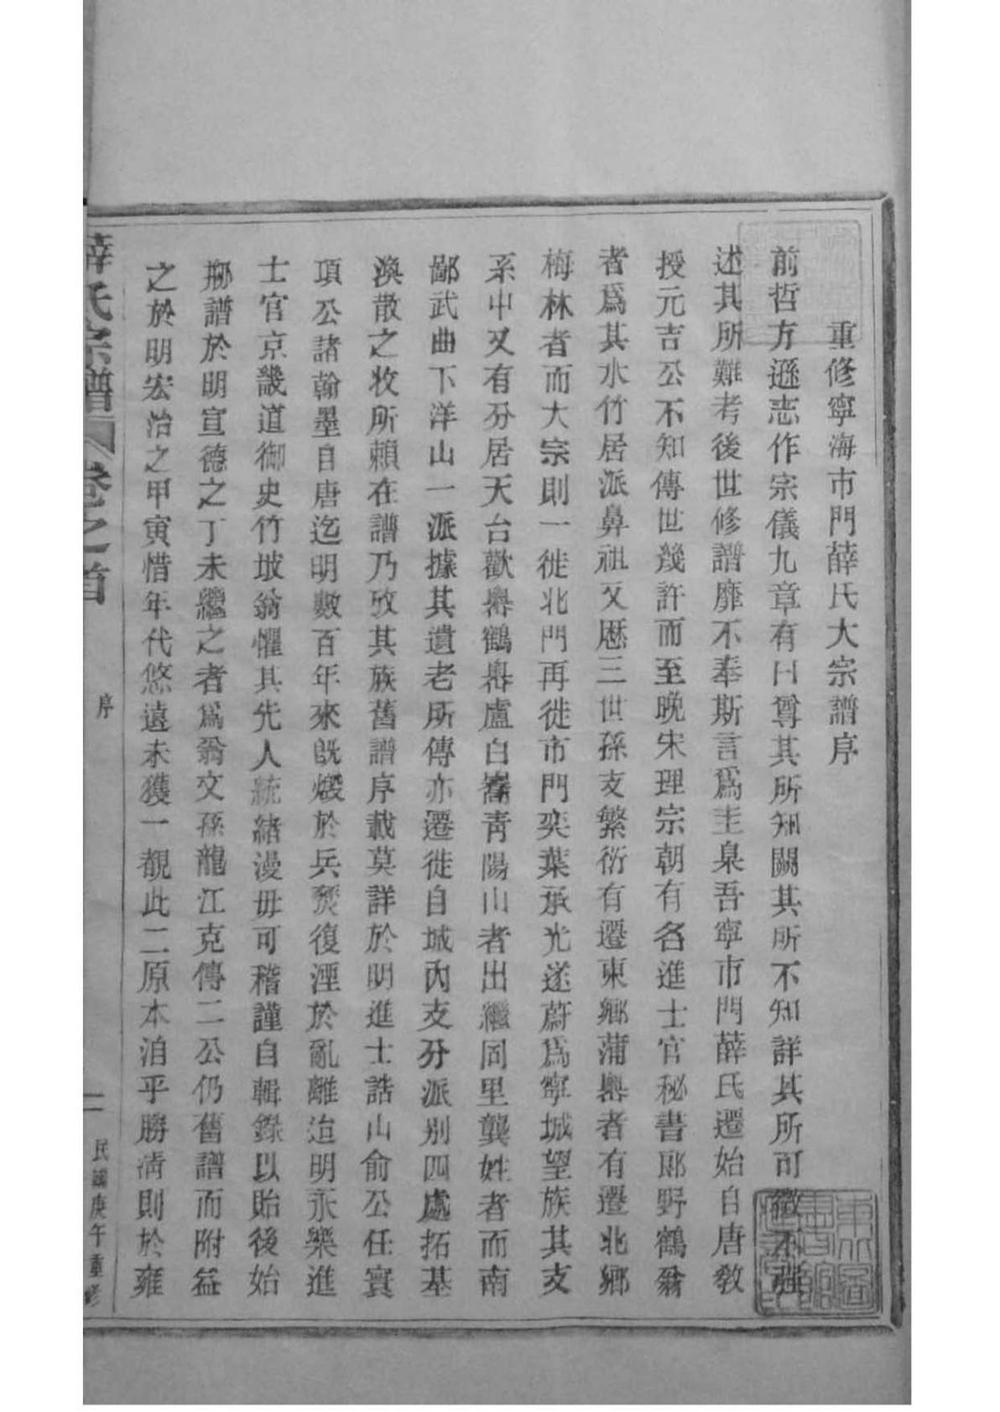 重修寧海市門薛氏大宗譜序
前哲方遜志作宗儀九章有曰尊其所知闕其所不知詳其所可徵不強
述其所難考後世修譜靡不奉斯言爲圭臬吾寧市門薛氏遷始自唐敎
授元吉公不知傳世幾許而至晚宋理宗朝有名進士官秘書郎野鶴翁
者爲其水竹居派鼻祖又歷三世孫支繁衍有遷東鄉蒲嶴者有遷北鄉
梅林者而大宗則一徙北門再徙市門奕葉承光遂蔚爲寧城望族其支
系中又有分居天台歡嶴鶴嶴盧白嶴青陽山者出繼同里龔姓者而南
鄙武曲下洋山一派據其遺老所傳亦遷徙自城內支分派別四處拓基
渙散之收所賴在譜乃攷其族舊譜序載莫詳於明進士誥山俞公任寰
項公諸翰墨自唐迄明數百年來旣燬於兵燹復湮於亂離迨明永樂進
士官京畿道御史竹坡翁懼其先人統緒漫毋可稽謹自輯錄以貽後始
刱譜於明宣德之丁未繼之者爲翁文孫龍江克傳二公仍舊譜而附益
之於明宏治之甲寅惜年代悠遠未獲一覩此二原本洎乎勝清則於雍
薛氏宗譜 卷之首
序
一
民國庚午重修